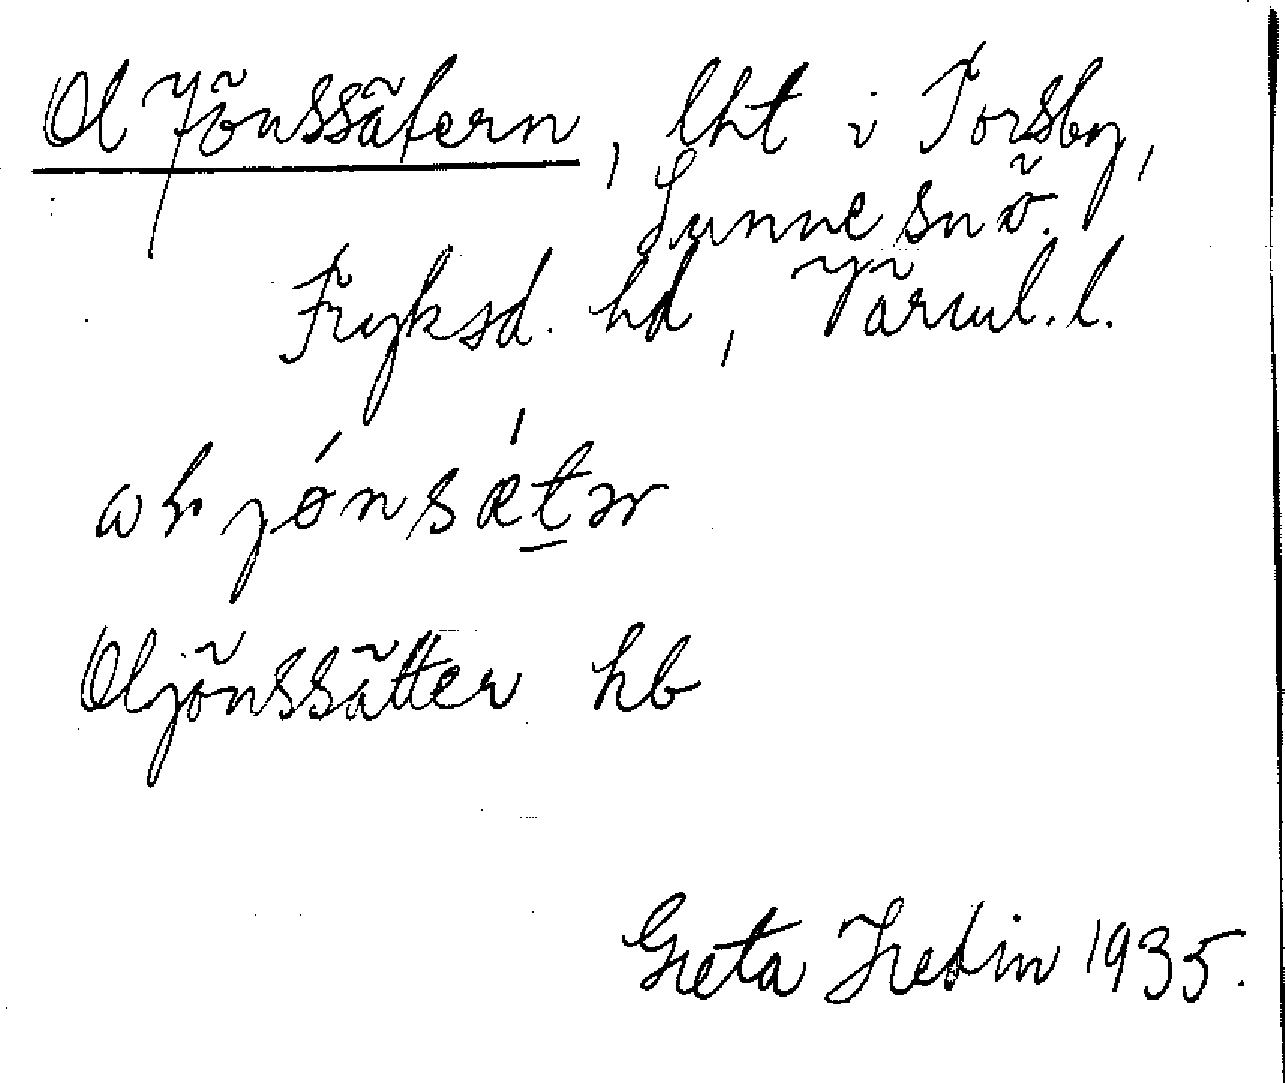 Ol Jönssätern, lht i Torsby,
Sunne sn ö.
Fryksd. hd, Värml. l.
jö́nsǽt̠ər
Oljönssätter hb
Greta Hedin 1935.